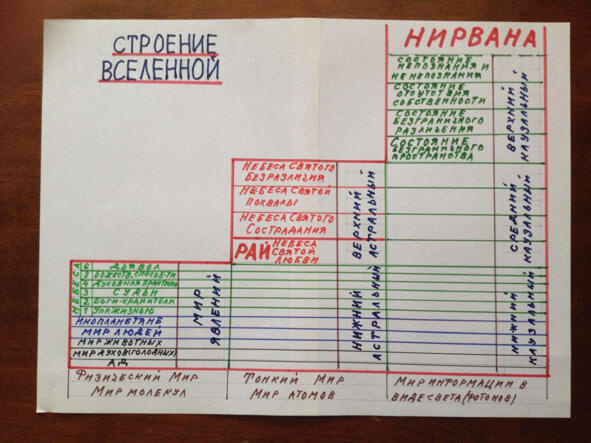 СТРОЕНИЕ
ВСЕЛЕННОЙ
НИРВАНА
СОСТОЯНИЕ
НЕПОЗНАНИЯ И
НЕНЕПОЗНАНИЯ
СОСТОЯНИЕ
ОТСУТСТВИЯ
СОБСТВЕННОСТИ
СОСТОЯНИЕ
БЕЗГРАНИЧНОГО
РАЗЛИЧЕНИЯ
СОСТОЯНИЕ
БЕЗГРАНИЧНОГО
ПРОСТРАНСТВА
ВЕРХНИЙ
КАУЗАЛЬНЫЙ
СРЕДНИЙ
КАУЗАЛЬНЫЙ
НИЖНИЙ
КАУЗАЛЬНЫЙ
НЕБЕСА СВЯТОГО
БЕЗРАЗЛИЧИЯ
НЕБЕСА СВЯТОЙ
ПОХВАЛЫ
НЕБЕСА СВЯТОГО
СОСТРАДАНИЯ
РАЙ НЕБЕСА
СВЯТОЙ
ЛЮБВИ
ВЕРХНИЙ
АСТРАЛЬНЫЙ
НИЖНИЙ
АСТРАЛЬНЫЙ
НЕБЕСА
6 ДЬЯВОЛ
5 БОЖЕСТВ. СПОСОБ-ТИ
4 ДУХОВНАЯ ПРАКТИКА
3 СУДЬИ
2 БОГИ-ХРАНИТЕЛИ
1 УПР. ЖИЗНЬЮ
ИНОПЛАНЕТЯНЕ
МИР ЛЮДЕЙ
МИР ЖИВОТНЫХ
МИР ДУХОВ(ГОЛОДНЫХ)
АД
МИР
ЯВЛЕНИЙ
ФИЗИЧЕСКИЙ МИР
МИР МОЛЕКУЛ
ТОНКИЙ МИР
МИР АТОМОВ
МИР ИНФОРМАЦИИ В
ВИДЕ СВЕТА (ФОТОНОВ)